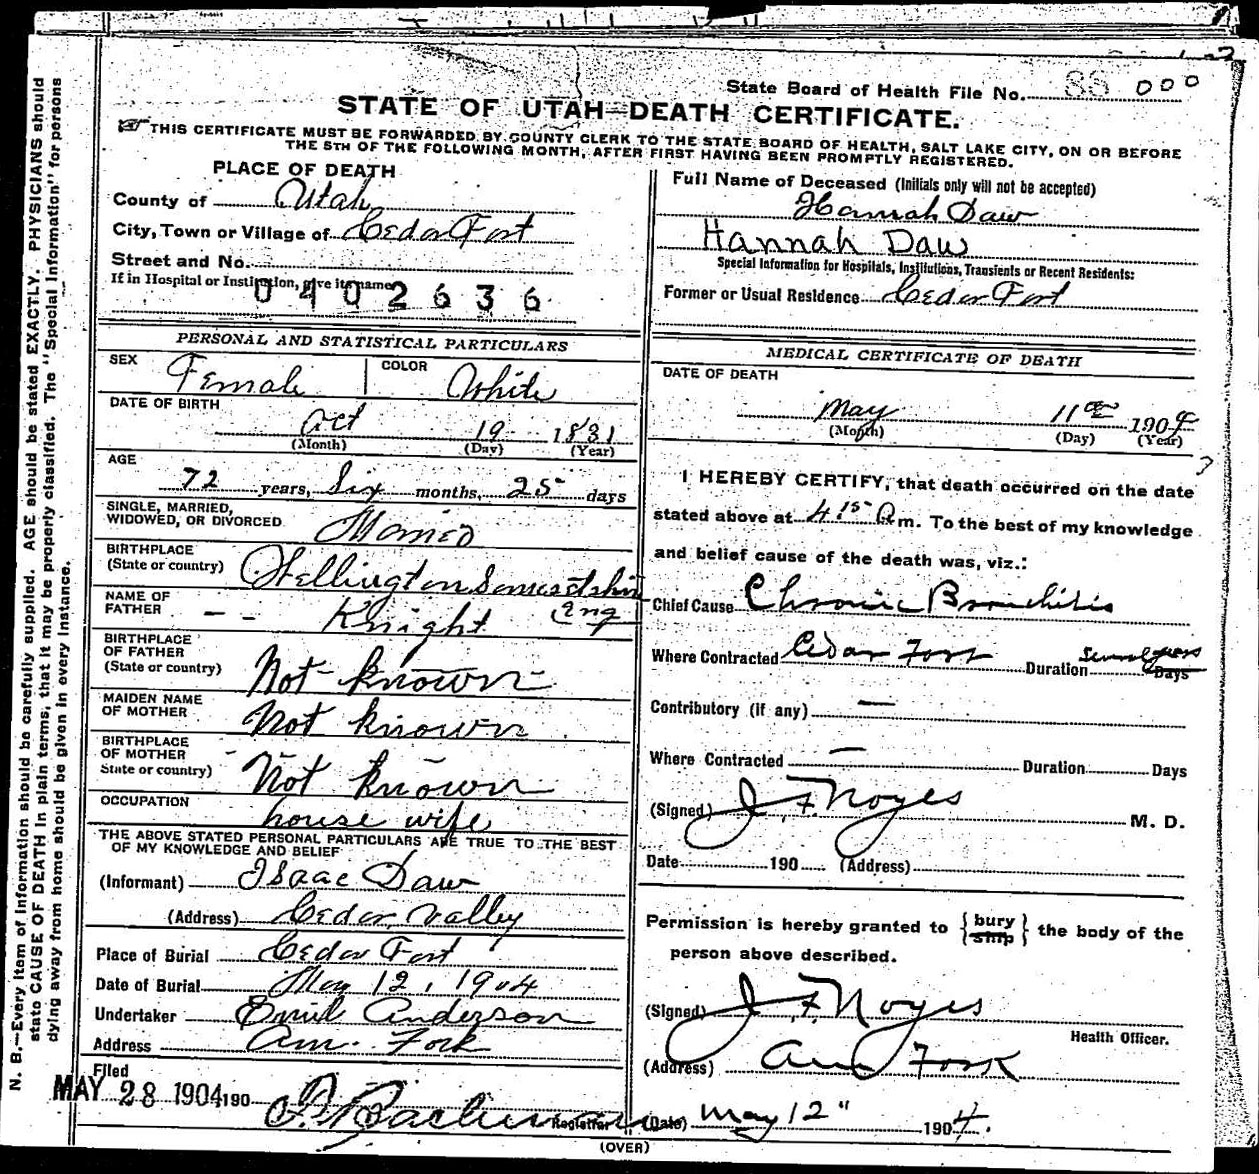 State Board of Health File No. 88 000
STATE OF UTAH—DEATH CERTIFICATE.
THIS CERTIFICATE MUST BE FORWARDED BY COUNTY CLERK TO THE STATE BOARD OF HEALTH, SALT LAKE CITY, ON OR BEFORE
THE 5TH OF THE FOLLOWING MONTH, AFTER FIRST HAVING BEEN PROMPTLY REGISTERED.
PLACE OF DEATH
County of Utah
City, Town or Village of Cedar Fort
Street and No.
If in Hospital or Institution, give its name
0402636
Full Name of Deceased (Initials only will not be accepted)
Hannah Daw
Hannah Daw
Special Information for Hospitals, Institutions, Transients or Recent Residents:
Former or Usual Residence Cedar Fort
PERSONAL AND STATISTICAL PARTICULARS
SEX Female COLOR White
DATE OF BIRTH
Oct 19 1831
(Month) (Day) (Year)
AGE
72 years, Six months, 25 days
SINGLE, MARRIED,
WIDOWED, OR DIVORCED Married
BIRTHPLACE
(State or country) Wellington Somersetshire
Eng
NAME OF
FATHER — Knight
BIRTHPLACE
OF FATHER
(State or country) Not known
MAIDEN NAME
OF MOTHER Not known
BIRTHPLACE
OF MOTHER
State or country) Not known
OCCUPATION
house wife
THE ABOVE STATED PERSONAL PARTICULARS ARE TRUE TO THE BEST
OF MY KNOWLEDGE AND BELIEF
(Informant) Isaac Daw
(Address) Cedar Valley
Place of Burial Cedar Fort
Date of Burial May 12, 1904
Undertaker Emil Anderson
Address Am. Fork
Filed
MAY 28 1904 190
Registrar
MEDICAL CERTIFICATE OF DEATH
DATE OF DEATH
May 11 1904
(Month) (Day) (Year)
I HEREBY CERTIFY, that death occurred on the date
stated above at 4:15 A m. To the best of my knowledge
and belief cause of the death was, viz.:
Chief Cause Chronic Bronchitis
Where Contracted Cedar Fort Duration Several years Days
Contributory (if any) —
Where Contracted — Duration Days
(Signed) J F Noyes M. D.
Date 190 (Address)
Permission is hereby granted to {bury ship} the body of the
person above described.
(Signed) J F Noyes
Health Officer.
(Address) Am Fork
(Date) May 12" 1904.
(OVER)
N. B.—Every item of information should be carefully supplied. AGE should be stated EXACTLY. PHYSICIANS should
state CAUSE OF DEATH in plain terms, that it may be properly classified. The "Special Information" for persons
dying away from home should be given in every instance.